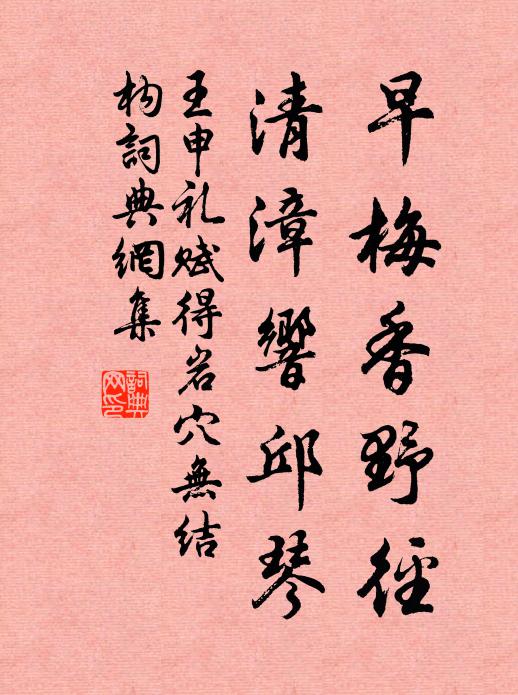 早梅香野徑
清漳響邱琴
王申礼賦得岩穴無結
构詞典網集
詞典網印